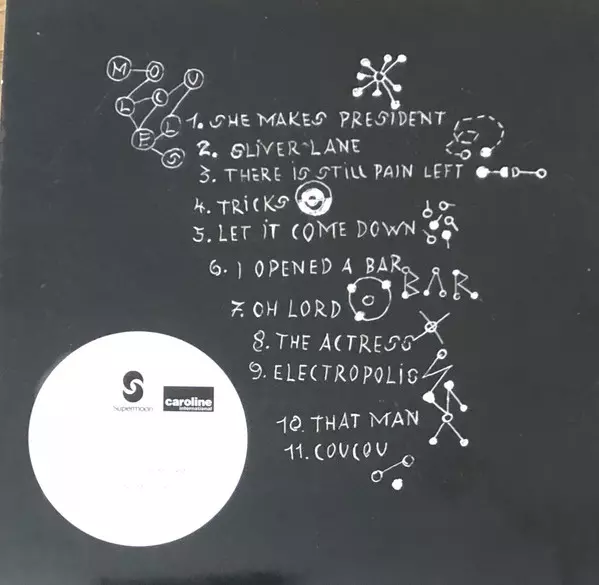 MOLÉCULES
1. SHE MAKES PRESIDENT
2. SLIVER LANE
3. THERE IS STILL PAIN LEFT
4. TRICKS
5. LET IT COME DOWN
6. I OPENED A BAR
BAR
7. OH LORD
8. THE ACTRESS
9. ELECTROPOLIS
10. THAT MAN
11. COUCOU
Supermoon
caroline
international